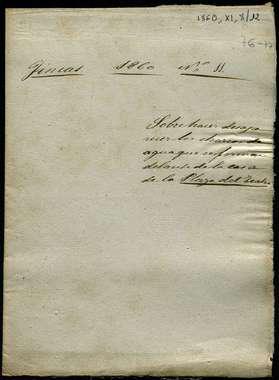 1860, XI, 8/12
76-
Fincas 1860 Nº 11.
Sobre hacer desapa
recer los charcos de
agua que se forman
delante de la casa
de la Plaza del Teatro